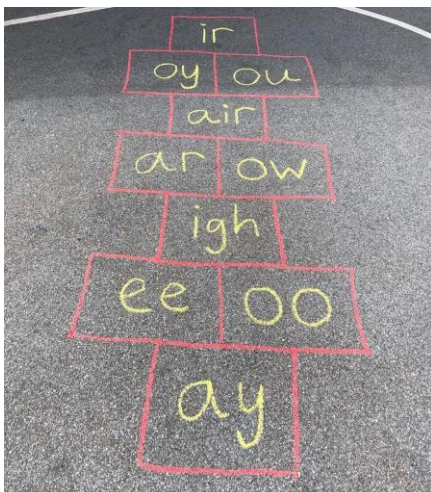 ir
oy ou
air
ar ow
igh
ee oo
ay